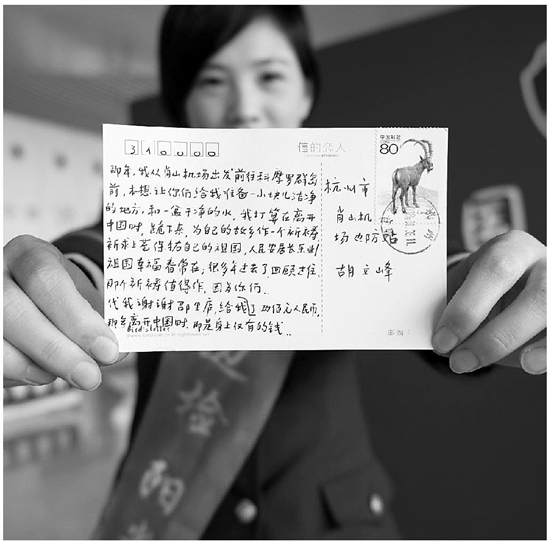 310000
信的恋人
中国邮政
80
那年，我从肖山机场出发前往科摩罗群岛
前，本想让你们给我准备一小块儿洁净
的地方，和一盆干净的水，我打算在离开
中国时，跪下来，为自己的故乡作一个祈祷
祈求上苍保佑自己的祖国，人民安居乐业
祖国幸福春常在，很多年过去了回顾过往
那个祈祷值得作，因为你们..
代我谢谢邵里庆，给我了
元人民币，
那年离开中国时，那是身上仅有的钱..
杭州市
肖山机
场边防站
胡立峰
边检阳光